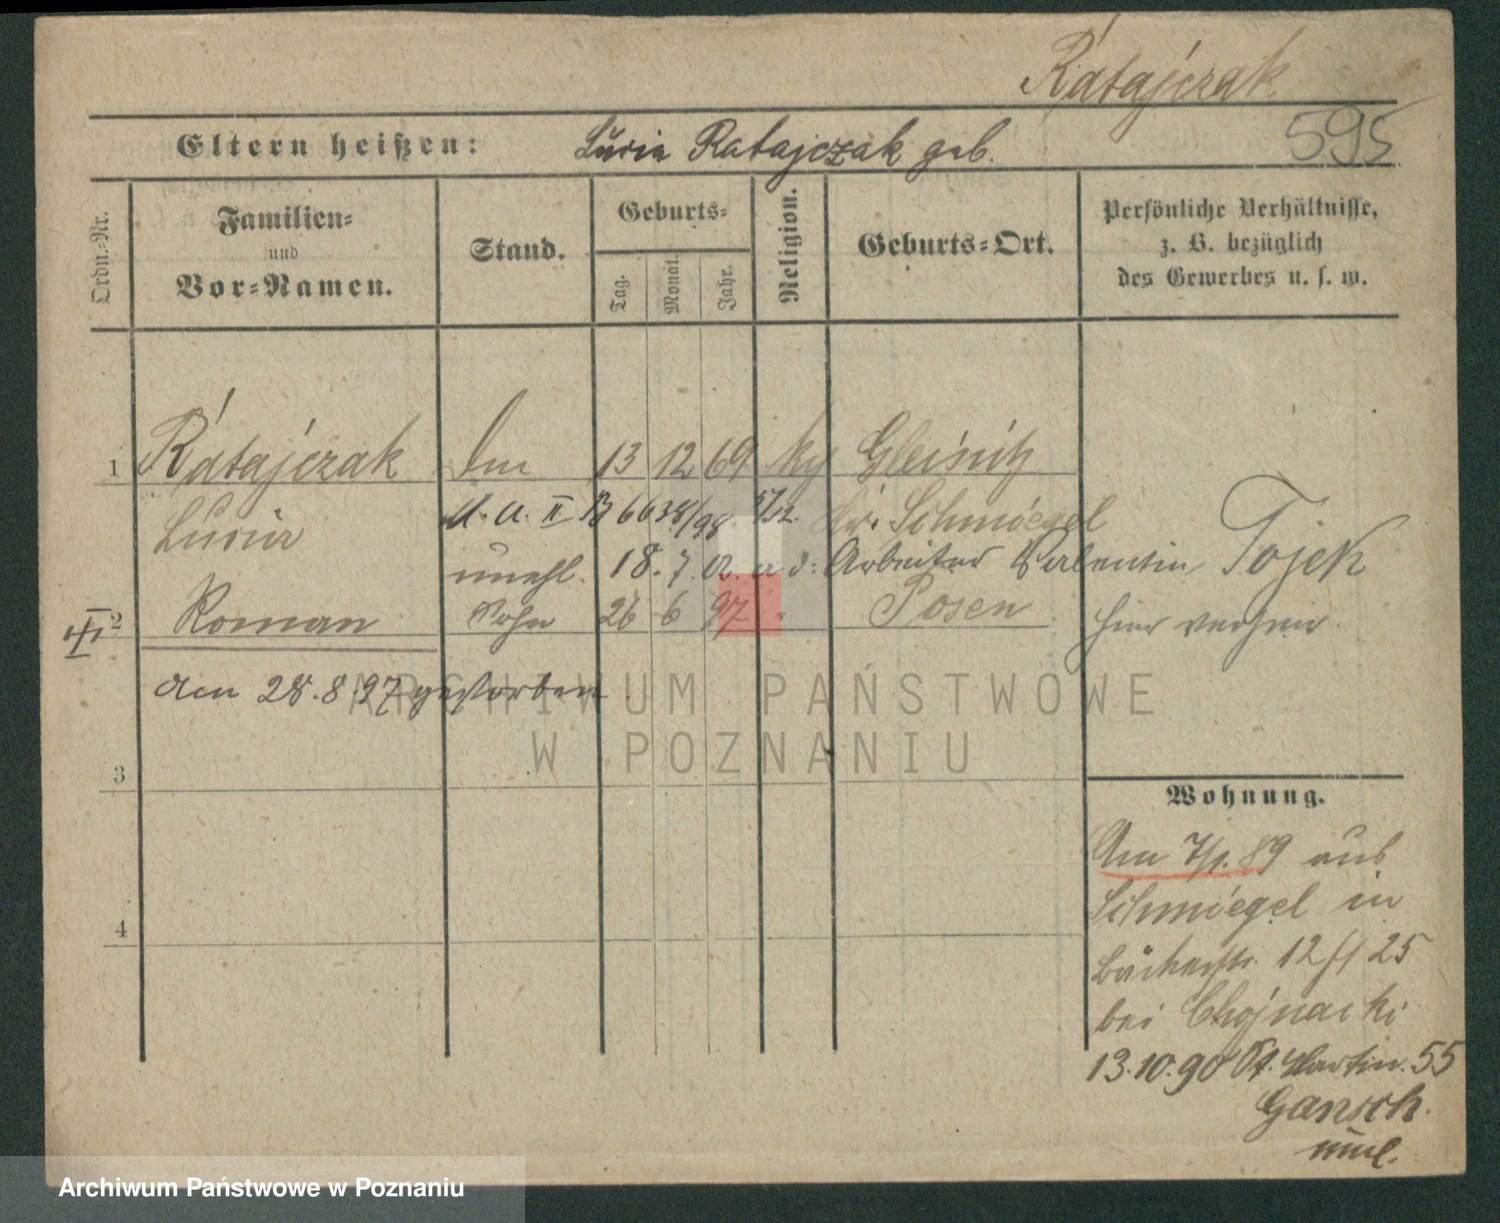 Ratajczak
595
Eltern heißen: Lucie Ratajczak geb.
Ordn.=Nr.
Familien=
und
Vor=Namen.
Stand.
Geburts=
Tag. Monat. Jahr.
Religion.
Geburts=Ort.
Persönliche Verhältnisse,
z. B. bezüglich
des Gewerbes u. s. w.
1 Ratajczak 13 12 69
Lucie II B 6638/98 Kr. Schmiegel
unehl. 18. 7. a. d. Arbeiter Valentin Tojek
2 Roman Sohn 26 6 97 Posen
hier
am 28.8.97 gestorben.
3
4
Wohnung.
Am 7/1.89 aus
Schmiegel in
Bäckerstr. 12 25
bei Chojnacki
13.10.90 St. Martin. 55
ARCHIWUM PAŃSTWOWE
W POZNANIU
Archiwum Państwowe w Poznaniu